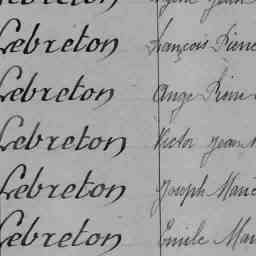 Lebreton François Pierre
Lebreton Ange Pierre
Lebreton Victor Jean
Lebreton Joseph Marie
Lebreton Emile Mari